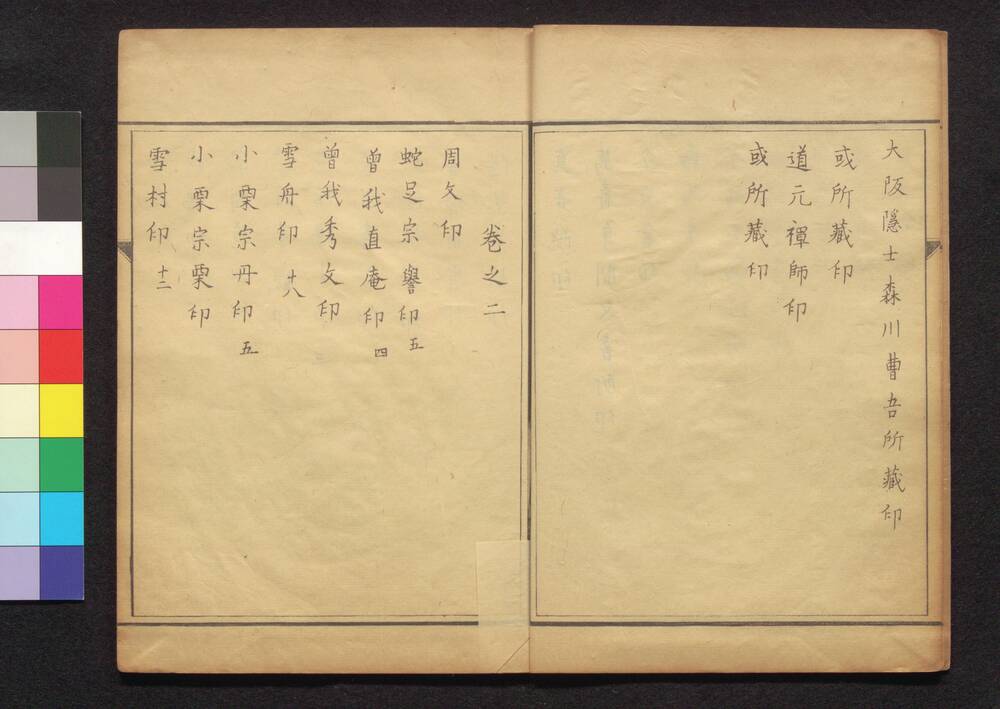 大阪隱士森川曹吾所藏印
或所藏印
道元禪師印
或所藏印
卷之二
周文印
蛇足宗譽印 五
曾我直庵印 四
曾我秀文印
雪舟印 十八
小栗宗丹印 五
小栗宗栗印
雪村印 十三